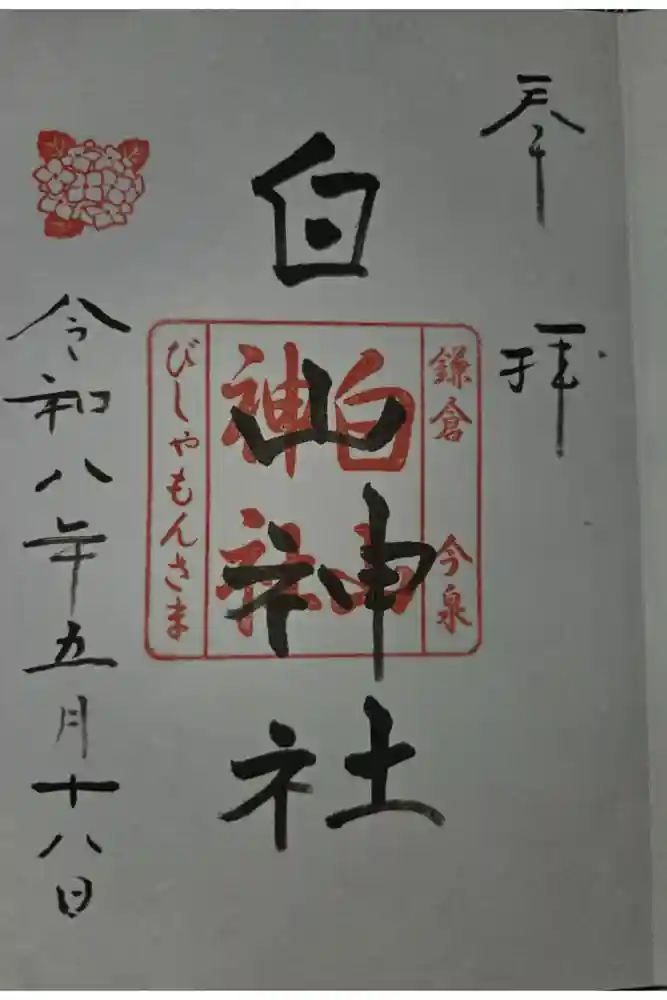 奉拝
白山神社
鎌倉 今泉
白山神社
びしゃもんさま
令和八年五月十八日